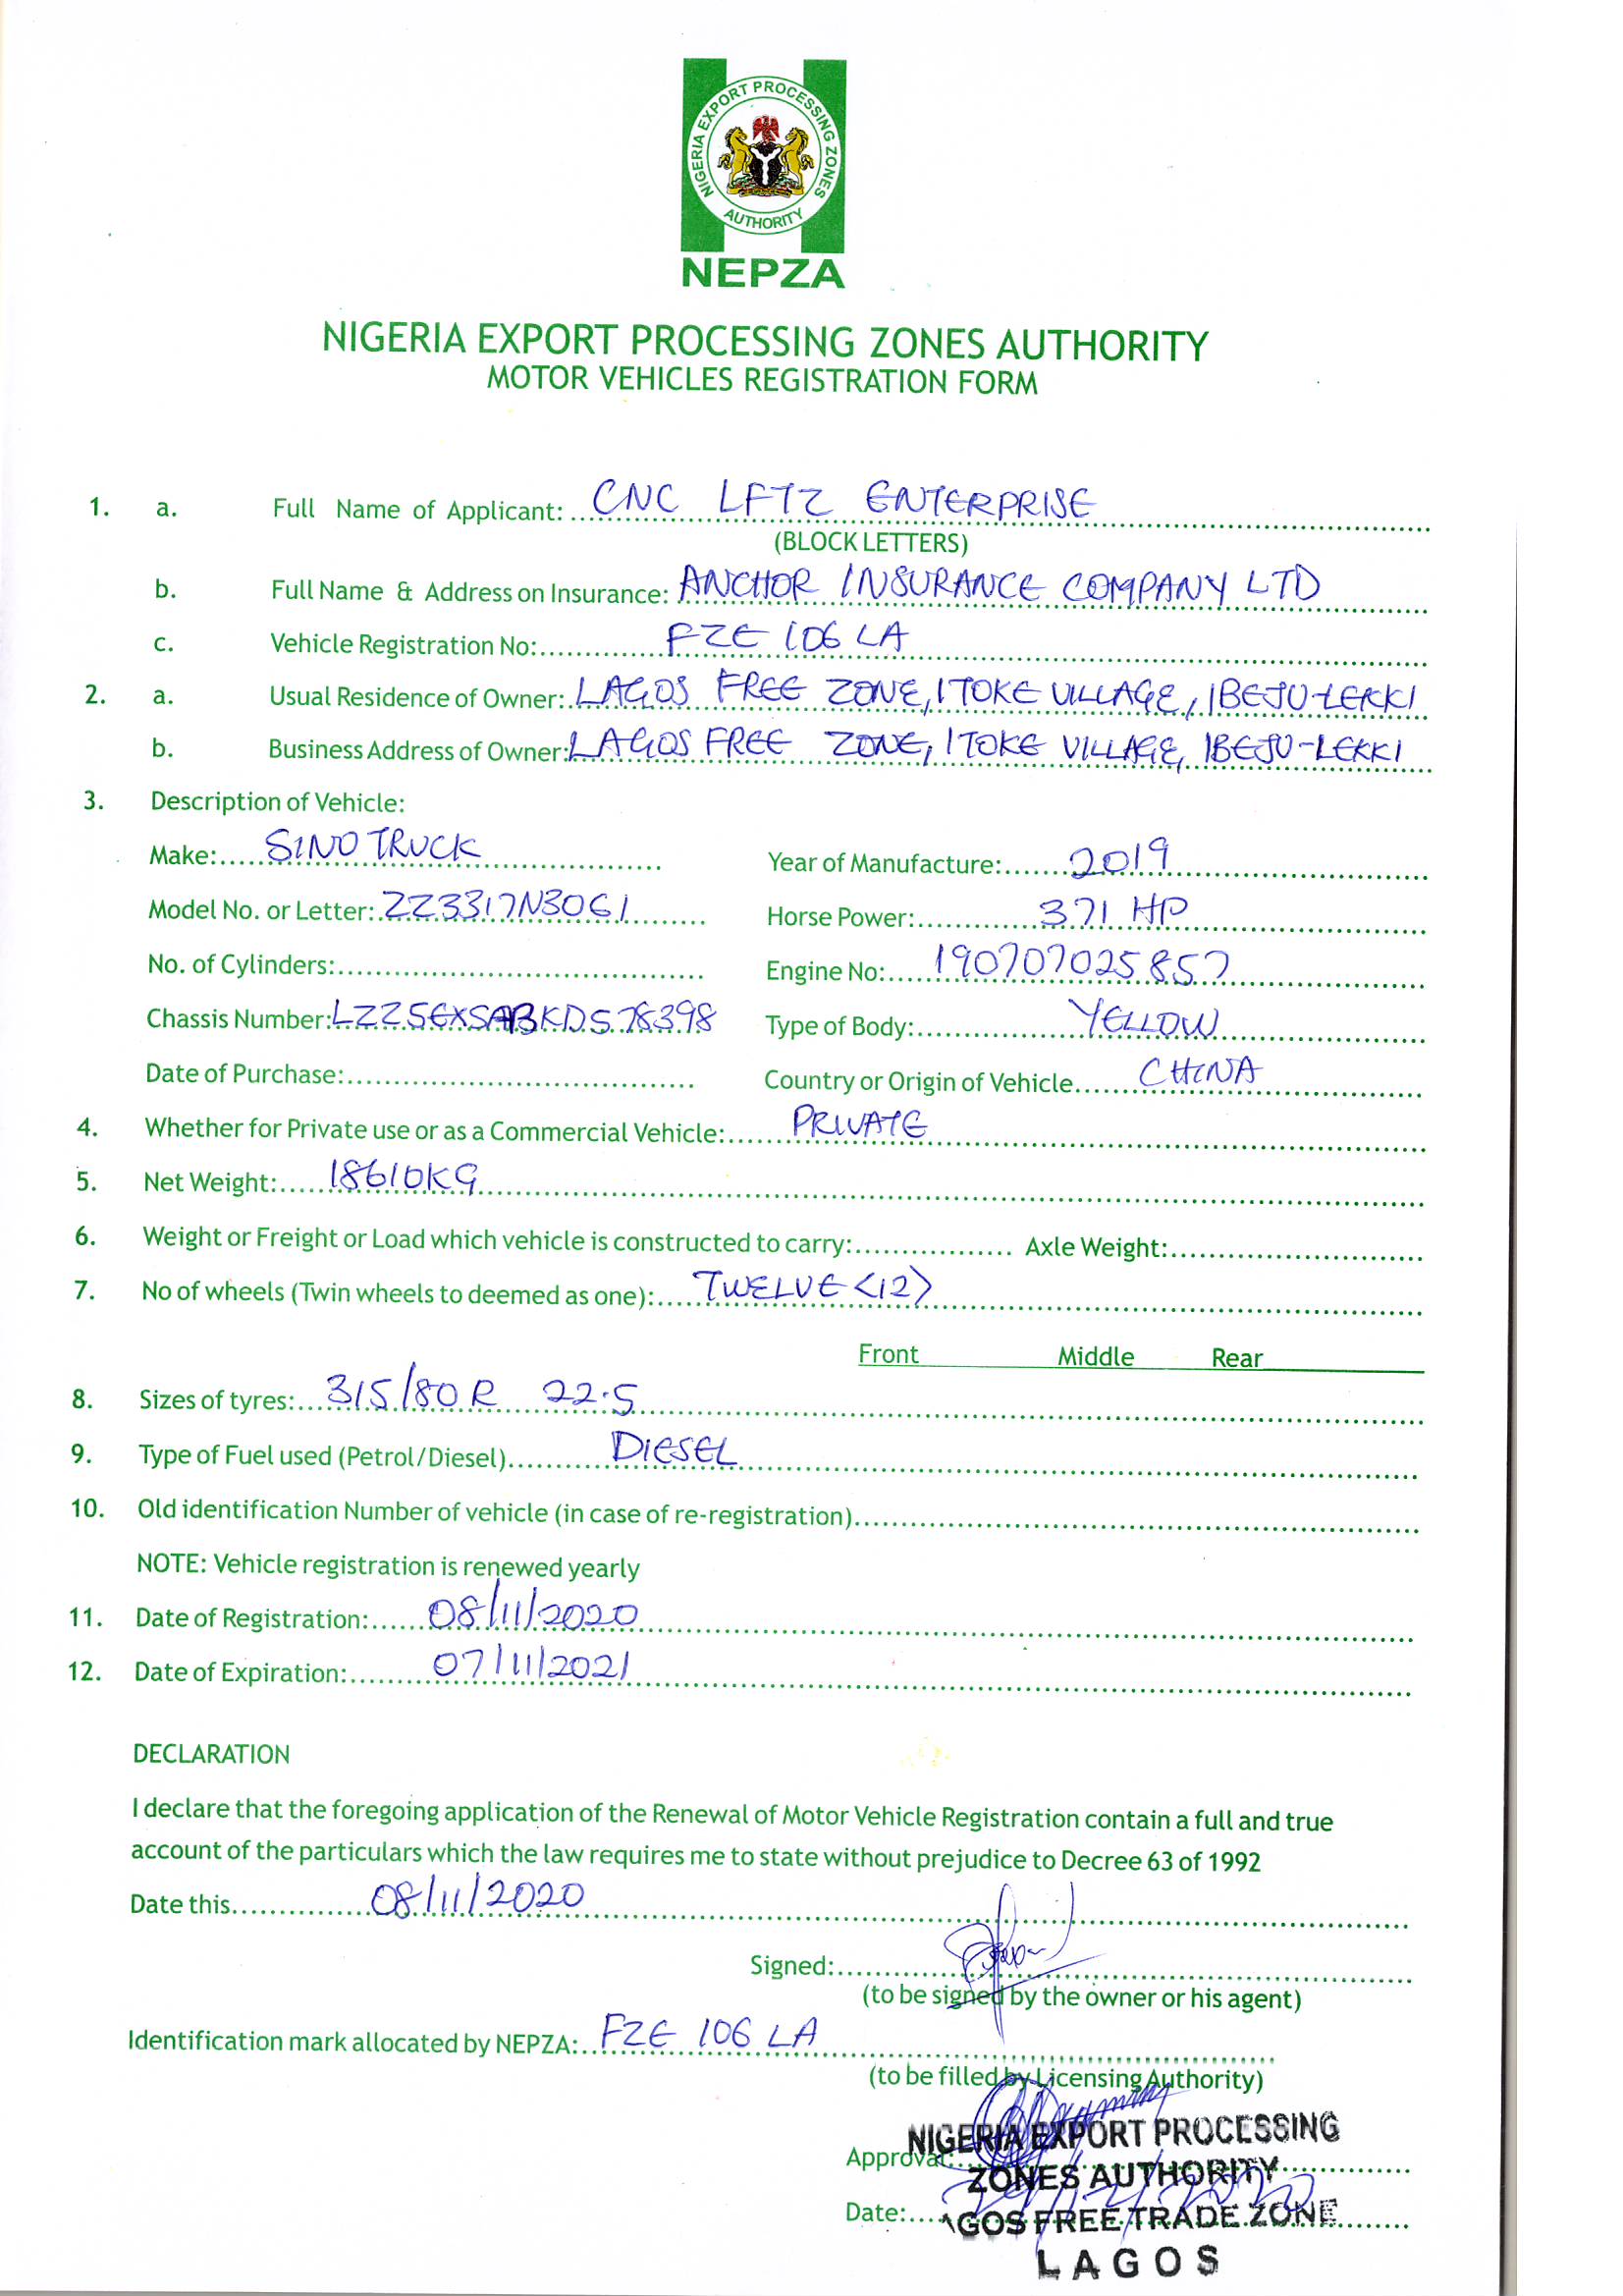 NIGERIA EXPORT PROCESSING ZONES
AUTHORITY
NEPZA
NIGERIA EXPORT PROCESSING ZONES AUTHORITY
MOTOR VEHICLES REGISTRATION FORM
1. a. Full Name of Applicant: CNC LFTZ ENTERPRISE
(BLOCK LETTERS)
b. Full Name & Address on Insurance: ANCHOR INSURANCE COMPANY LTD
c. Vehicle Registration No: FZE 106 LA
2. a. Usual Residence of Owner: LAGOS FREE ZONE, ITOKE VILLAGE, IBEJU-LEKKI
b. Business Address of Owner: LAGOS FREE ZONE, ITOKE VILLAGE, IBEJU-LEKKI
3. Description of Vehicle:
Make: SINO TRUCK Year of Manufacture: 2019
Model No. or Letter: ZZ3317N3061 Horse Power: 371 HP
No. of Cylinders: Engine No: 190707025857
Chassis Number: LZZ5EXSABKD578398 Type of Body: YELLOW
Date of Purchase: Country or Origin of Vehicle CHINA
4. Whether for Private use or as a Commercial Vehicle: PRIVATE
5. Net Weight: 18610KG
6. Weight or Freight or Load which vehicle is constructed to carry: Axle Weight:
7. No of wheels (Twin wheels to deemed as one): TWELVE <12>
Front Middle Rear
8. Sizes of tyres: 315/80 R 22.5
9. Type of Fuel used (Petrol/Diesel) DIESEL
10. Old identification Number of vehicle (in case of re-registration)
NOTE: Vehicle registration is renewed yearly
11. Date of Registration: 08/11/2020
12. Date of Expiration: 07/11/2021
DECLARATION
I declare that the foregoing application of the Renewal of Motor Vehicle Registration contain a full and true
account of the particulars which the law requires me to state without prejudice to Decree 63 of 1992
Date this 08/11/2020
Signed:
(to be signed by the owner or his agent)
Identification mark allocated by NEPZA: FZE 106 LA
(to be filled by Licensing Authority)
NIGERIA EXPORT PROCESSING
Approval:
ZONES AUTHORITY
Date:
AGOS FREE TRADE ZONE
LAGOS